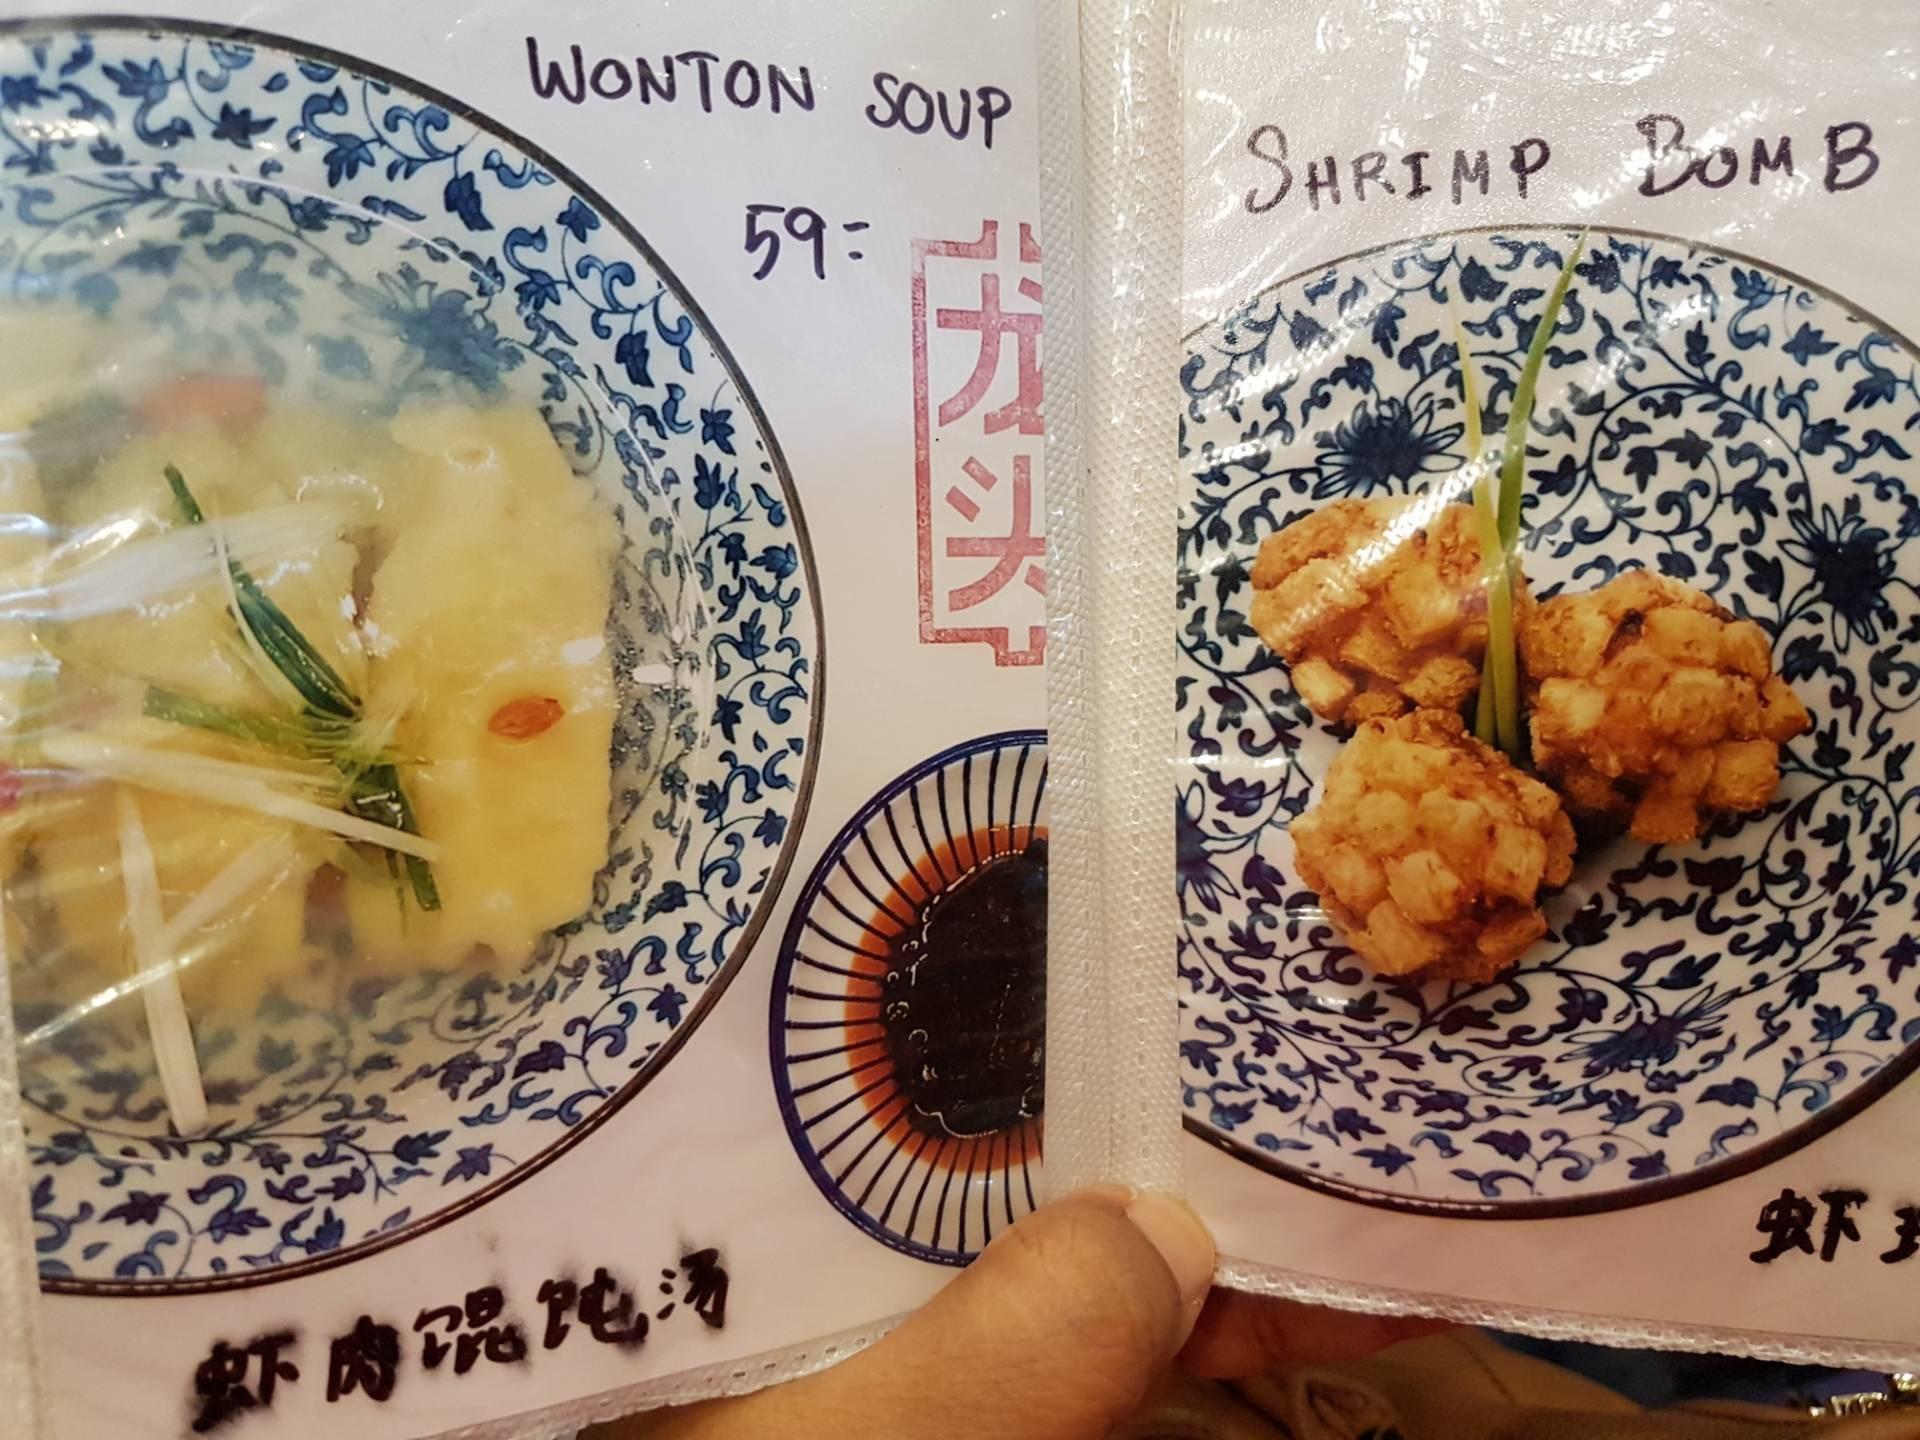 WONTON SOUP
59=
龙
头
虾肉馄饨汤
SHRIMP BOMB
虾